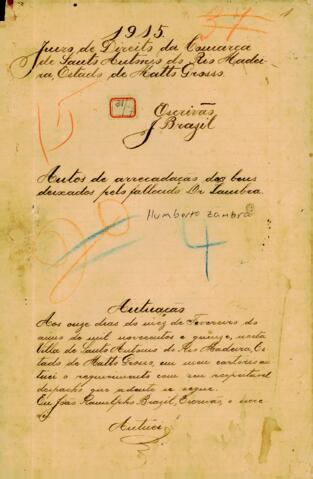 1915.
37
1
Juizo de Direito da Comarca
de Santo Antonio do Rio Madei-
ra, Estado de Matto Grosso.
15
Escrivão
J Brazil
Autos de arrecadação dos bens
deixados pelo fallecido Dr Zambra.
Humberto Zambra
20
4
Autuação
Aos onze dias do mez de Fevereiro do
anno de mil novecentos e quinze, nesta
Villa de Santo Antonio do Rio Madeira, Es-
tado de Matto Grosso, em meu cartorio au-
tuei o requerimento com seu respeitavel
despacho que adiante se segue.
Eu João Brazil, Escrivão, o escre
vi
Autuei